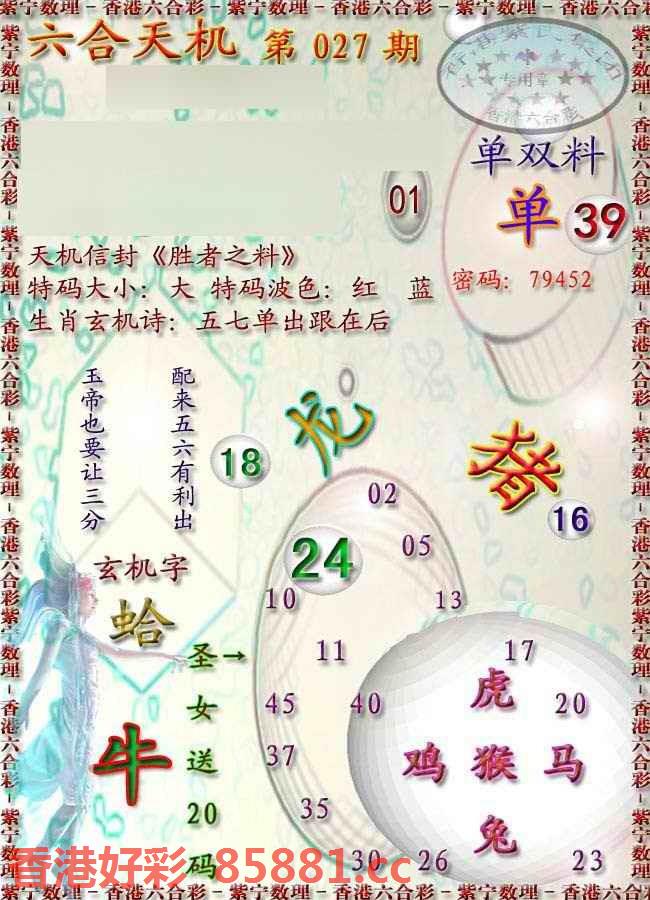 紫宁数理－香港六合彩－紫宁数理－香港六合彩－紫宁数理－香港六合彩
六合天机 第 027 期
专用章
香港六合彩
单双料
01
单 39
天机信封《胜者之料》
特码大小：大 特码波色：红 蓝
密码：79452
生肖玄机诗：五七单出跟在后
配来五六有利出
玉帝也要让三分
龙
18
猪
16
02
24
05
玄机字
10
13
蛤
圣→
女
送
20
码
11
17
45
40
虎
20
牛
37
鸡 猴 马
35
兔
30
26
23
香港好彩 85881.cc
紫宁数理－香港六合彩－紫宁数理－香港六合彩－紫宁数理－香港六合彩